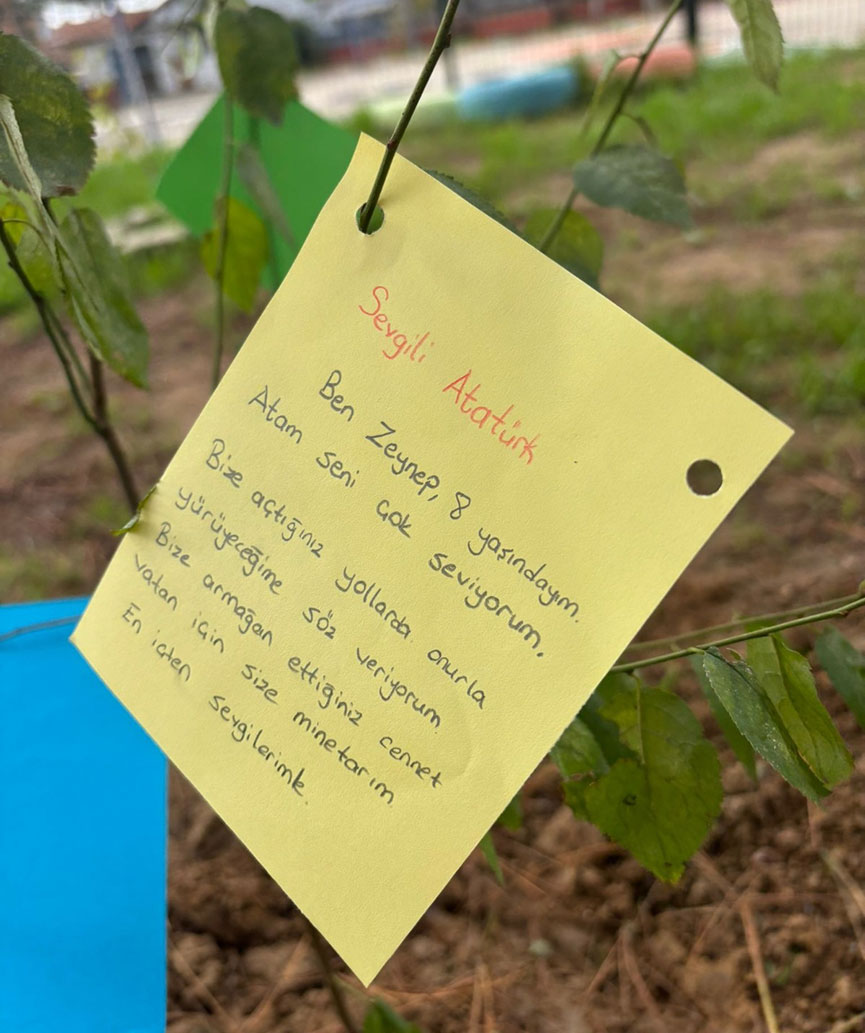 Sevgili Atatürk
Ben Zeynep, 8 yaşındayım.
Atam seni çok seviyorum.
Bize açtığınız yollarda onurla
yürüyeceğime söz veriyorum.
Bize armağan ettiğiniz cennet
vatan için size minetarım
En içten sevgilerimle.